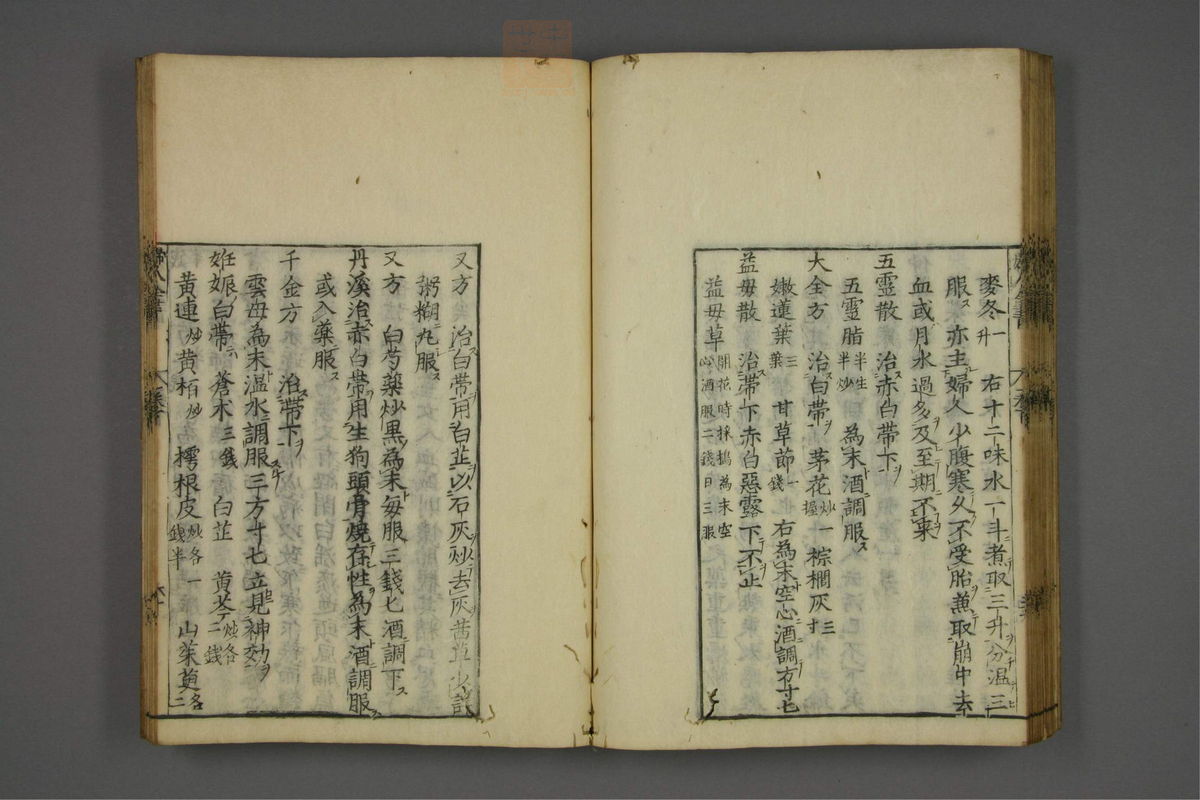 麥冬一升　右十二味水一斗煮取三升分温三
服亦主婦人少腹寒久不受胎兼取崩中去
血或月水過多及至期不來
五靈散　治赤白帶下
五靈脂半生半炒　為末酒調服
大全方　治白帶　茅花炒一握　棕櫚灰三寸
嫩蓮葉三葉　甘草節一錢　右為末空心酒調方寸七
益毋散　治帶下赤白惡露下不止
益毋草開花時採搗為末空心酒服二錢日三服
又方　治白帶用白芷以石灰炒去灰茜草少許
粥糊丸服
又方　白芍藥炒黑為末每服三錢匕酒調下
丹溪治赤白帶用生狗頭骨燒存性為末酒調服
或入藥服
千金方　治帶下
雲母為末温水調服三方寸七立見神効
姙娠白帶　蒼术三錢　白芷　黄芩炒各二錢
黄連炒　黄栢炒　樗根皮炒各一錢半　山茱萸各二